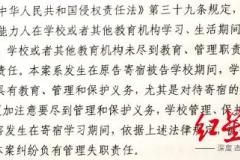 中华人民共和国侵权责任法》第三十九条规定,
能力人在学校或者其他教育机构学习、生活期间
学校或者其他教育机构未尽到教育、管理职责
责任。本案系发生在原告寄宿被告学校期间,学
具有教育、管理和保护义务,尤其是对待寄宿的
更加注意要尽到管理和保护义务,学校管理、保
害发生在寄宿学习期间,依据上述法律规
本案纠纷负有管理失职责任。
红星
深度